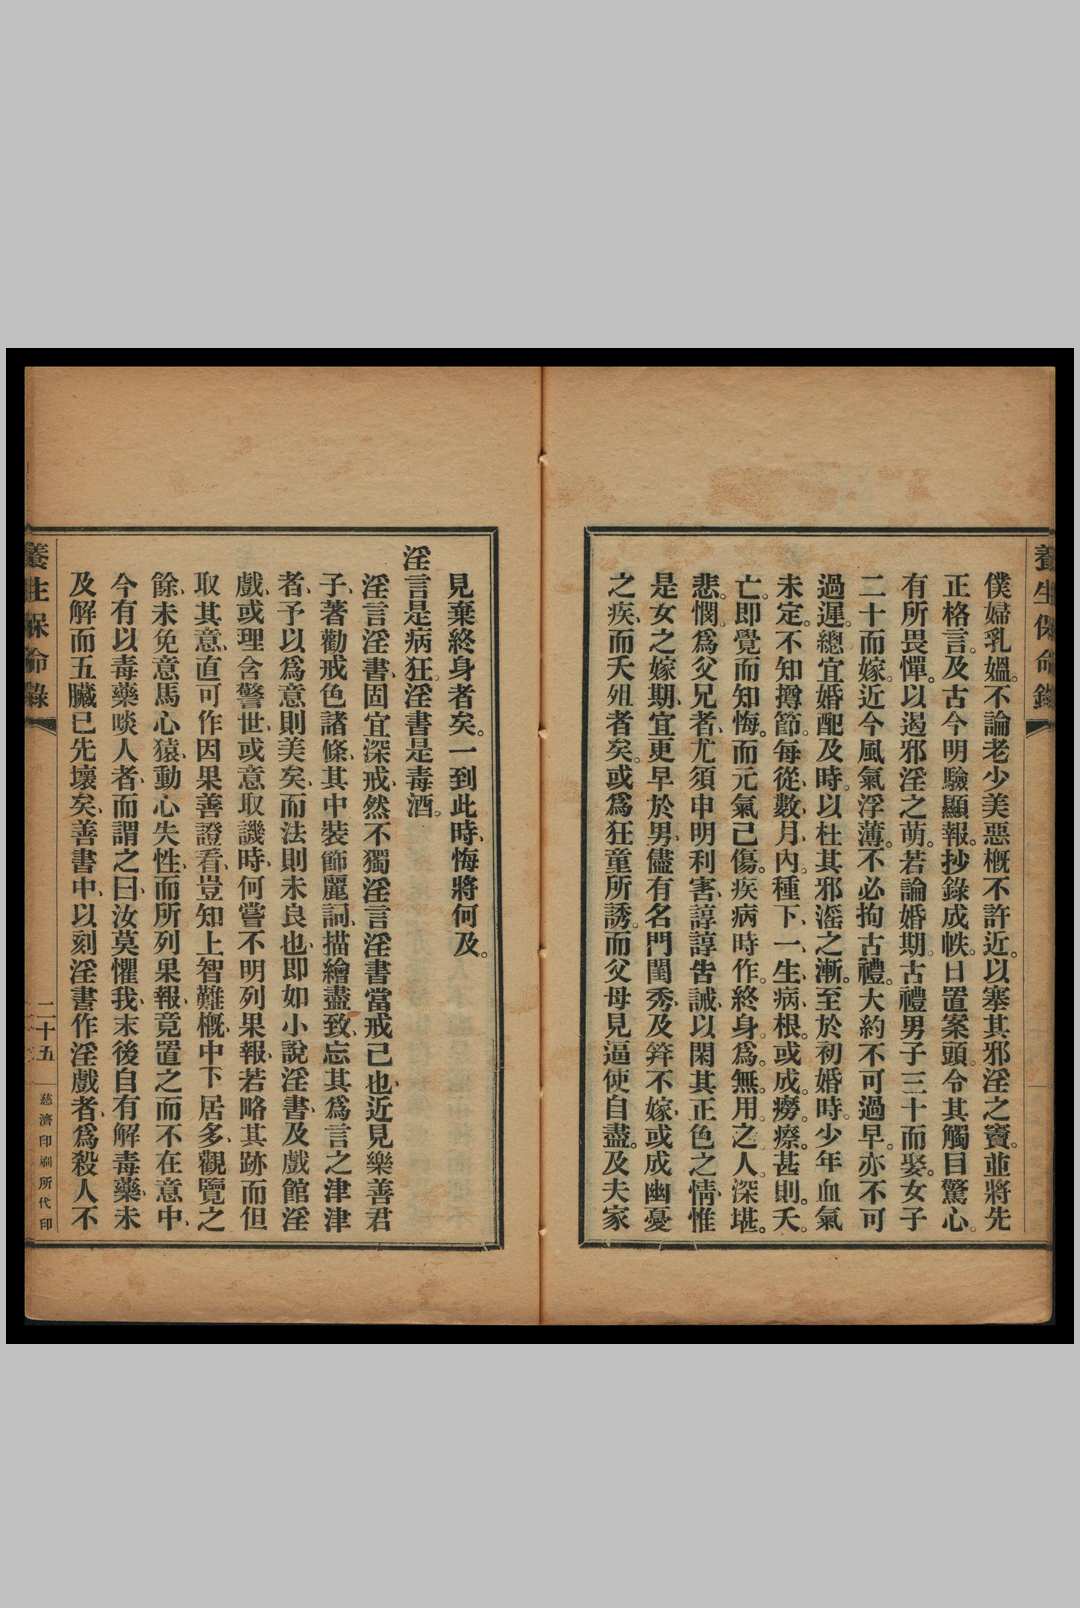 養生保命錄
僕婦乳媼。不論老少美惡概不許近。以塞其邪淫之竇。並將先
正格言。及古今明驗顯報。抄錄成帙。日置案頭。令其觸目驚心。
有所畏憚。以遏邪淫之萌。若論婚期。古禮男子三十而娶。女子
二十而嫁。近今風氣浮薄。不必拘古禮。大約不可過早。亦不可
過遲。總宜婚配及時。以杜其邪滛之漸。至於初婚時。少年血氣
未定。不知撙節。每從數月內。種下一生病根。或成癆瘵。甚則夭
亡。即覺而知悔。而元氣已傷。疾病時作。終身為無用之人。深堪
悲憫。為父兄者。尤須申明利害。諄諄告誡。以閑其正色之情。惟
是女之嫁期。宜更早於男。儘有名門閨秀。及筓不嫁。或成幽憂
之疾。而夭殂者矣。或為狂童所誘。而父母見逼使自盡。及夫家
見棄終身者矣。一到此時、悔將何及。
淫言是病狂。淫書是毒酒。
淫言淫書、固宜深戒、然不獨淫言淫書當戒已也、近見樂善君
子、著勸戒色諸條、其中裝飾麗詞、描繪盡致、忘其為言之津津
者、予以為意則美矣、而法則未良也、即如小說淫書、及戲館淫
戲、或理含警世、或意取譏時、何嘗不明列果報、若略其跡而但
取其意、直可作因果善證看、豈知上智難概、中下居多、觀覽之
餘、未免意馬心猿、動心失性、而所列果報、竟置之而不在意中、
今有以毒藥啖人者、而謂之曰、汝莫懼我、末後自有解毒藥、未
及解而五臟已先壞矣、善書中、以刻淫書作淫戲者、為殺人不
養生保命錄
二十五
慈濟印刷所代印